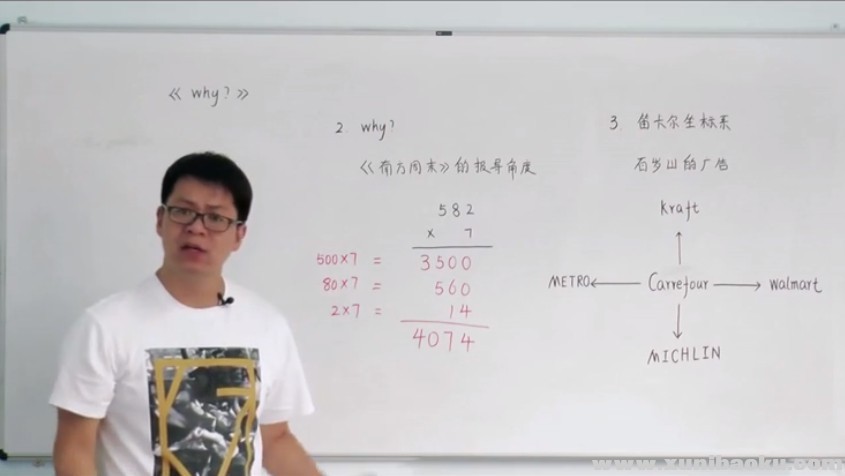 《 why? 》
2. why?
《南方周末》的报导角度
582
× 7
500×7 = 3500
80×7 = 560
2×7 = 14
4074
3. 笛卡尔坐标系
石岁山的广告
kraft
METRO ← Carrefour → Walmart
MICHLIN
www.xunihaoku.com